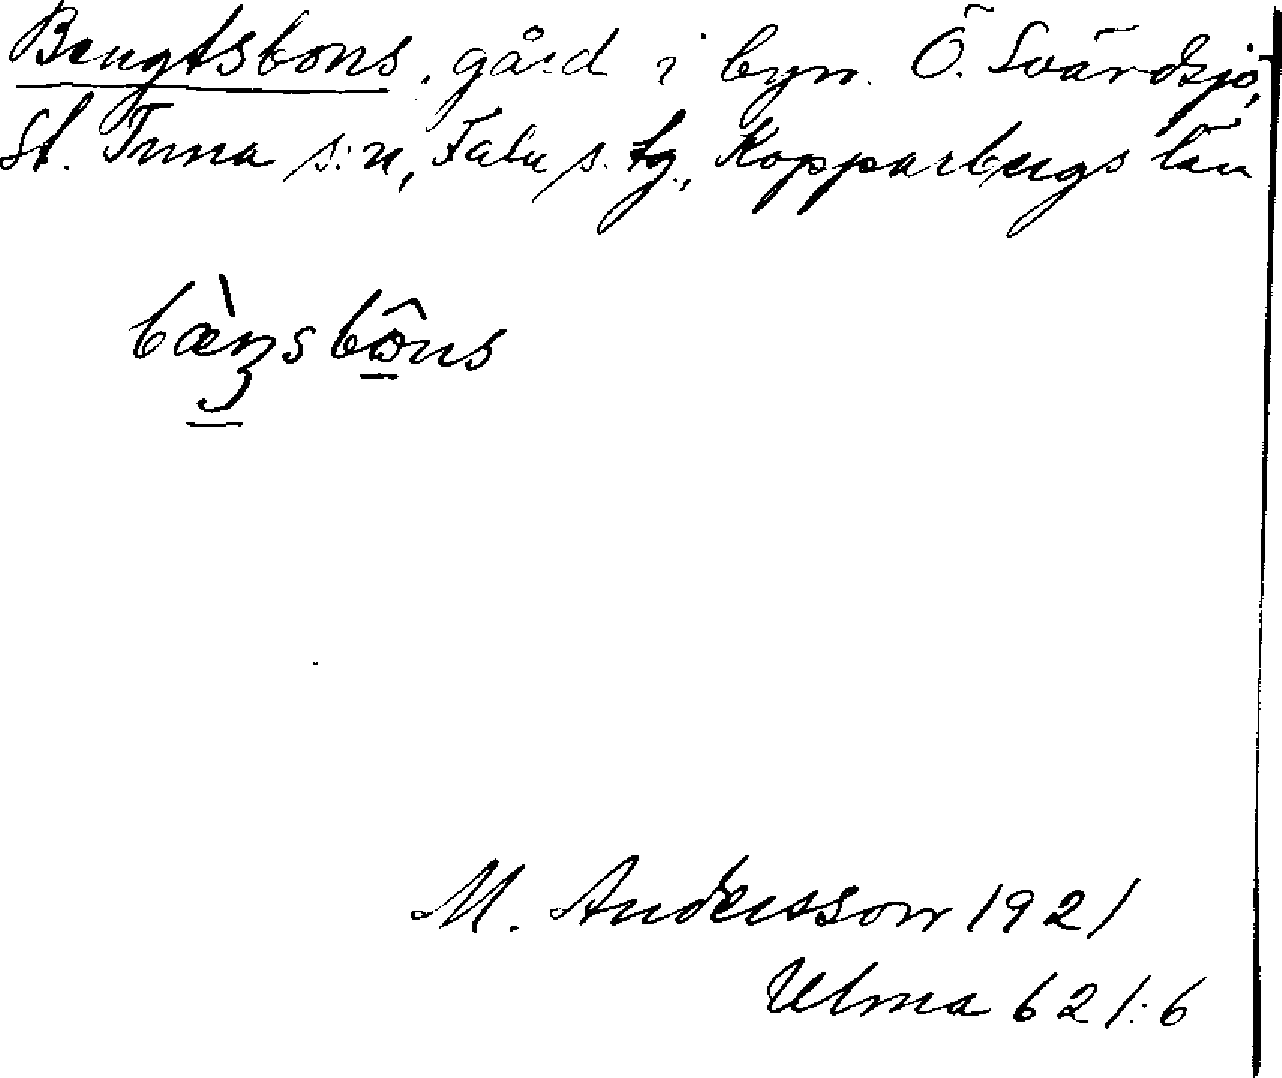 Bengtsbons, gård i byn Ö. Svärdsjö,
St. Tuna s:n, Falu s. tg., Kopparbergs län
bæ̀ŋsbôns
M. Andersson 1921
Ulma 621:6